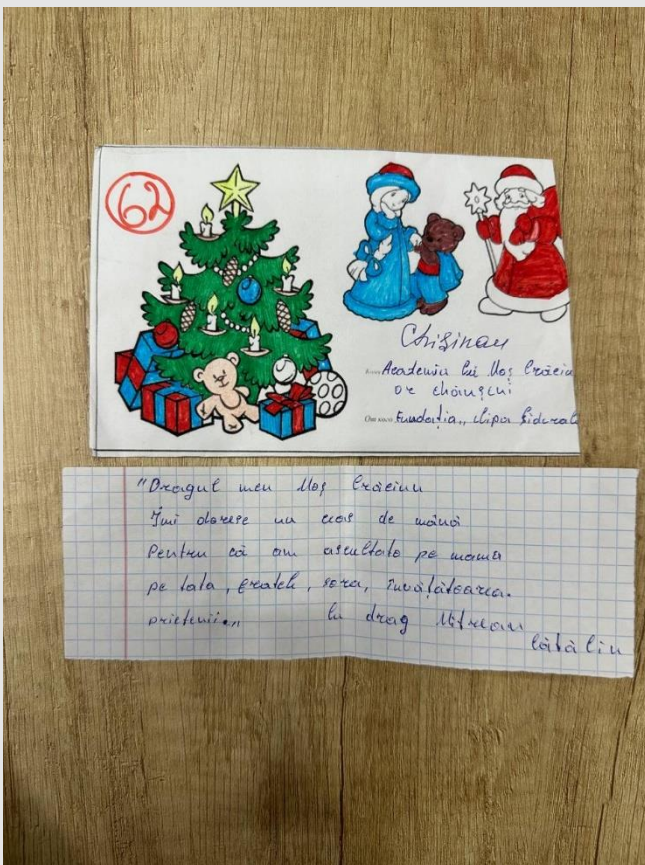 62
Chișinau
Academia lui Moș Crăciu
or Chișinau
Fundația „Clipa Siderală
"Dragul meu Moș Crăciunu
Îmi doresc un ceas de mână
Pentru că am ascultato pe mama
pe tata, fratele, sora, învățătoarea.
prietenii„ Cu drag
Cătălin